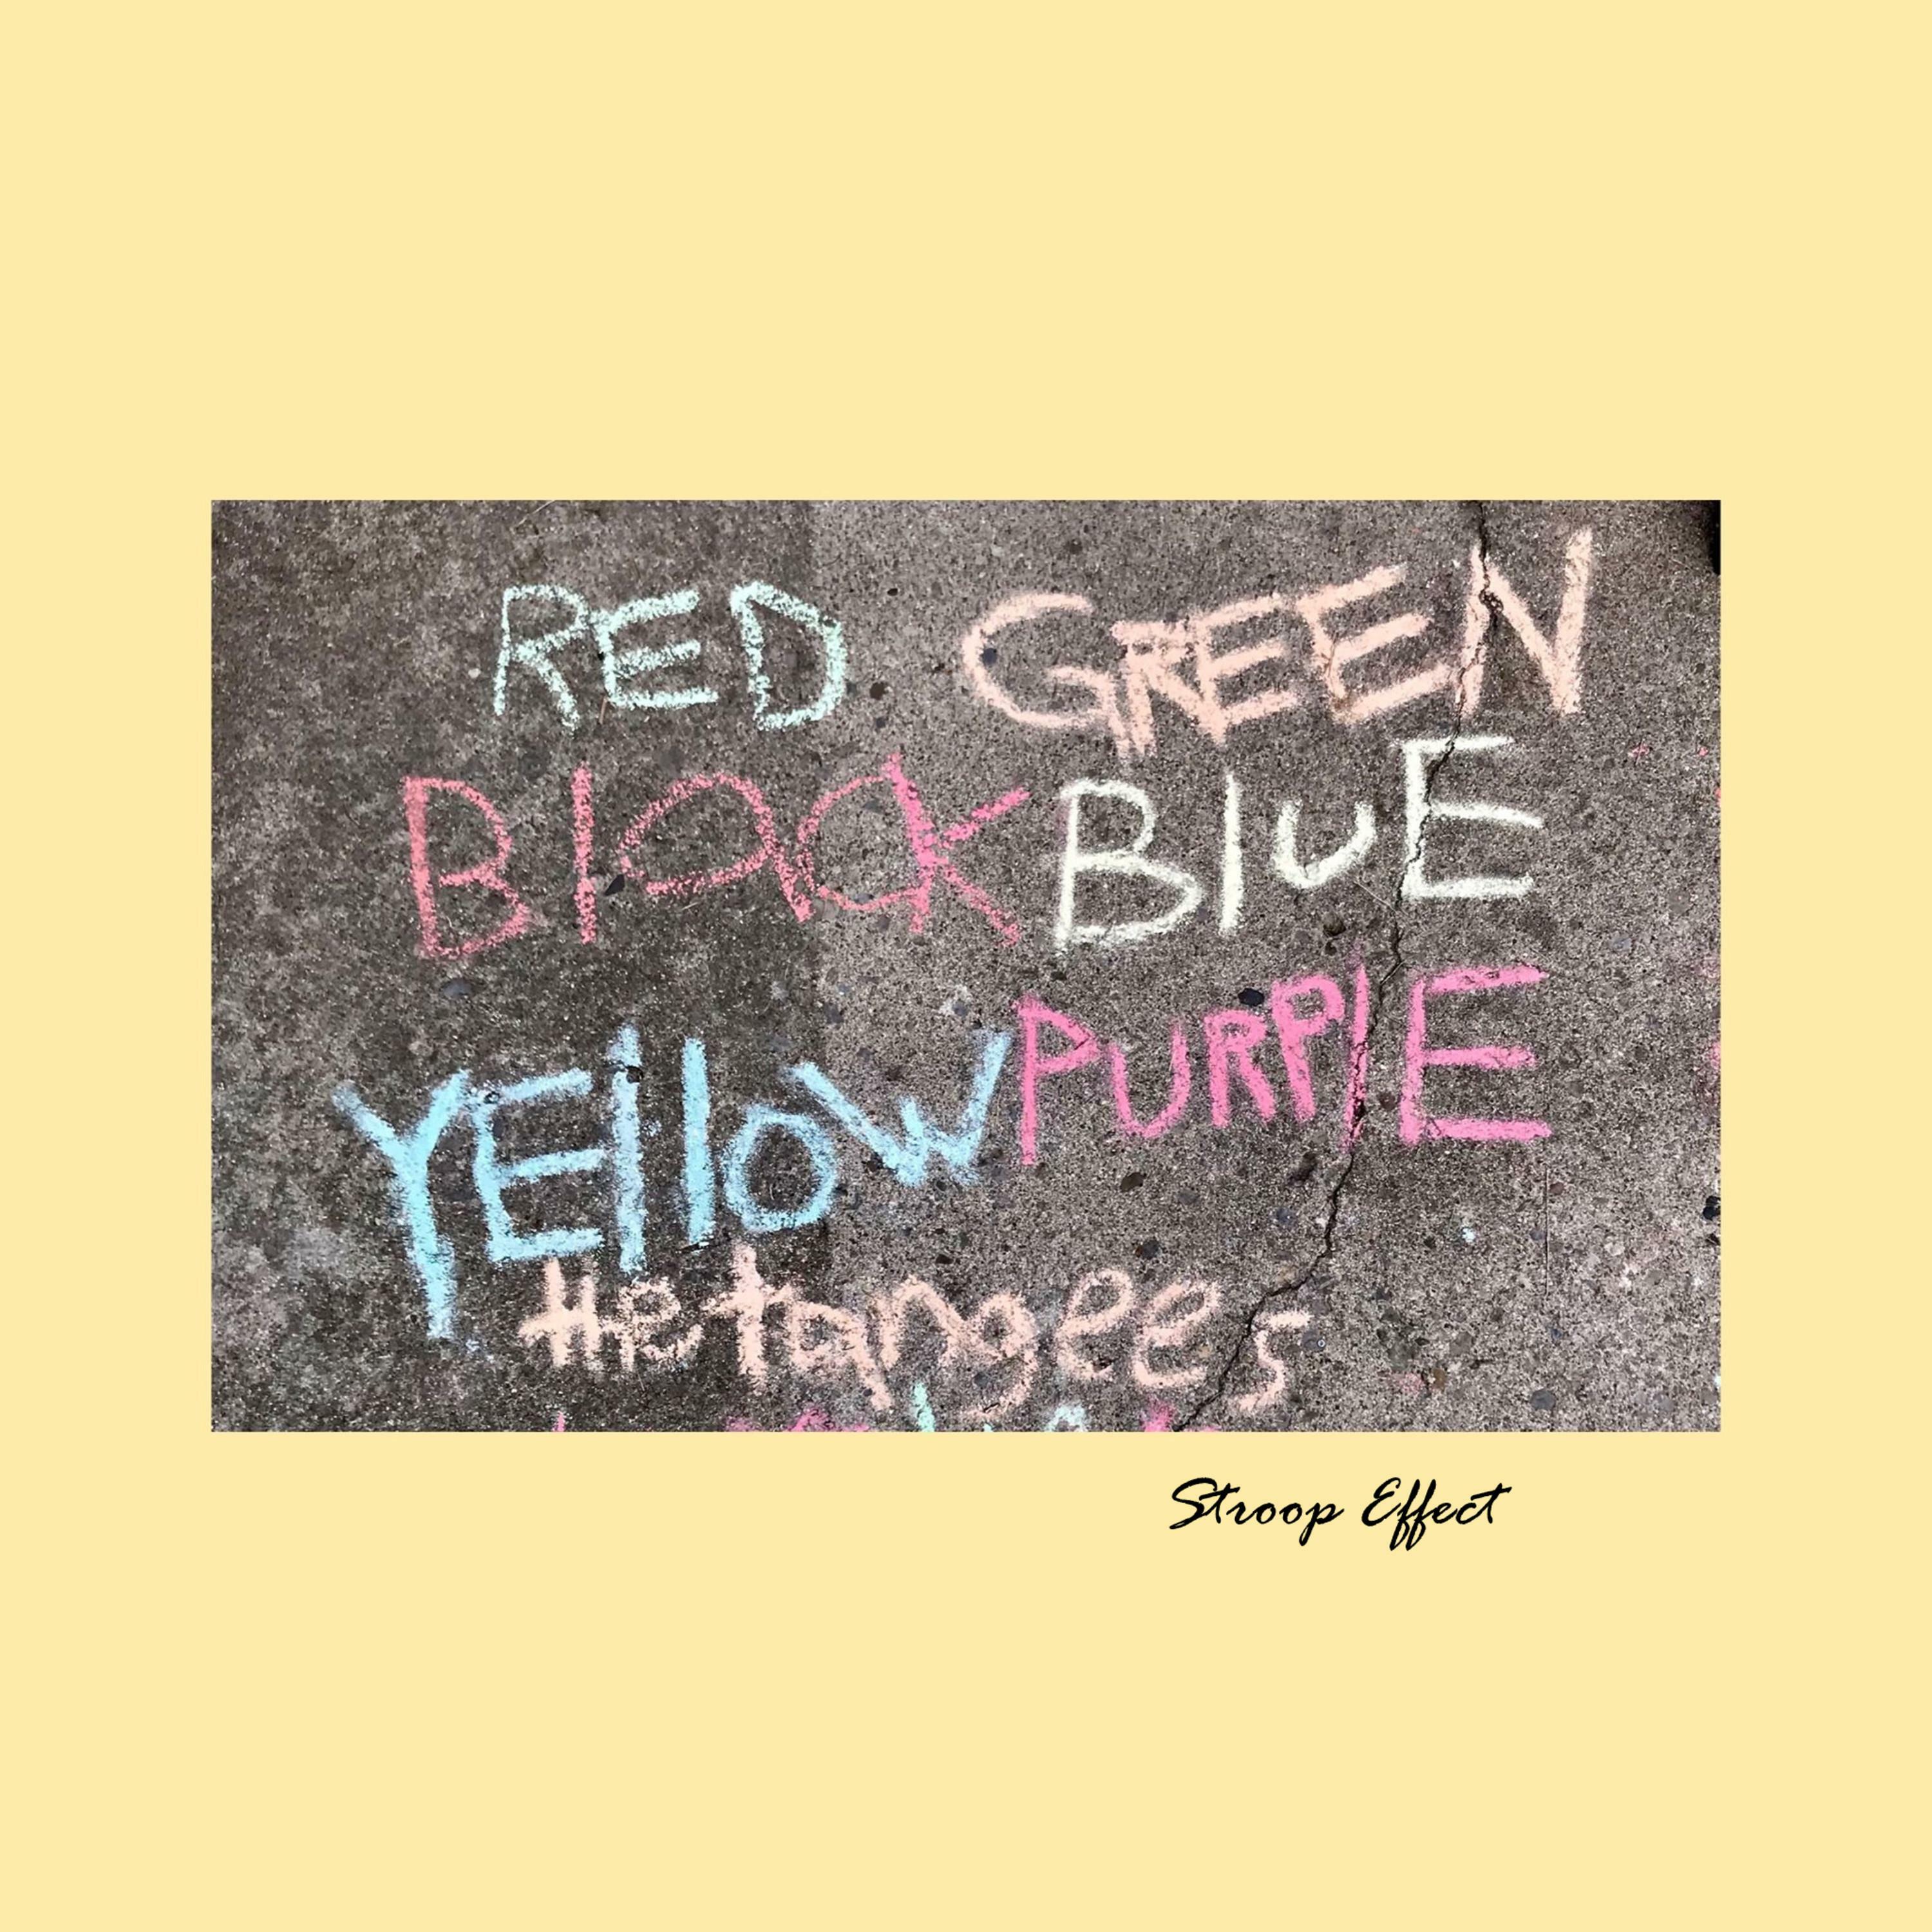 RED GREEN
BlacK BlUE
YEllOW PURPlE
the tangees
Stroop Effect